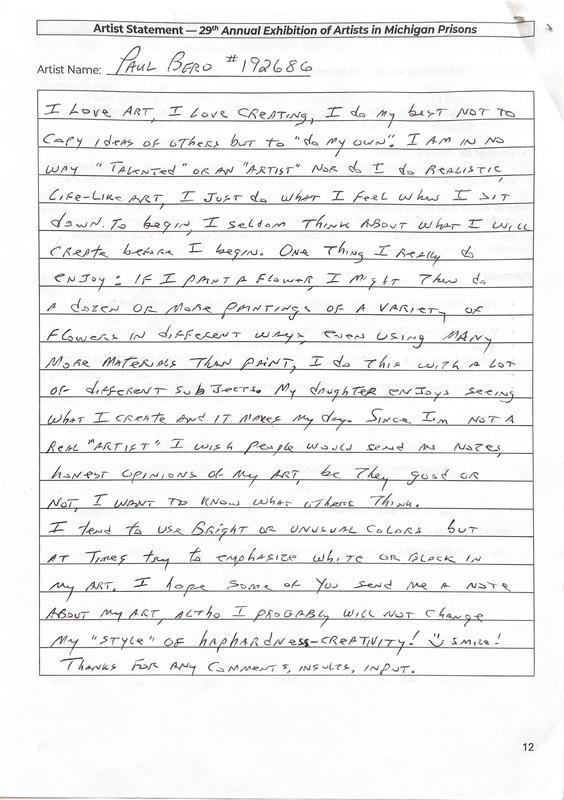 Artist Statement — 29th Annual Exhibition of Artists in Michigan Prisons
Artist Name: PAUL BERO #192686
I LOVE ART, I LOVE CREATING, I do My BEST NOT TO
COPY IDEAS OF OTHERS but TO "do MY OWN". I AM IN NO
WAY "TALENTED" OR AN "ARTIST" NOR do I do REALISTIC,
LIFE-LIKE ART, I JUST do WHAT I FEEL WHEN I SIT
down. To begin, I seldom THINK ABOUT WHAT I WILL
CREATE before I begin. ONE THING I REALLY do
ENJOY: IF I PAINT A FLOWER, I MIGHT THEN do
A dozen OR MORE PAINTINGS OF A VARIETY OF
FLOWERS IN different WAYS, EVEN USING MANY
MORE MATERIALS THAN PAINT, I do THIS WITH A LOT
OF different SUBJECTS. My daughter ENJOYS SEEING
WHAT I CREATE AND IT MAKES My day. SINCE I'm NOT A
REAL "ARTIST" I WISH People WOULD SEND ME NOTES,
honest OPINIONS OF My ART, be They good OR
NOT, I WANT TO KNOW WHAT OTHERS THINK.
I tend to USE BRIGHT OR UNUSUAL COLORS but
AT TIMES try to emphasize WHITE OR BLACK IN
My ART. I hope SOME OF YOU SEND ME A NOTE
ABOUT My ART, ALTHO I PROBABLY WILL NOT Change
My "STYLE" OF HAPHARDNESS-CREATIVITY! SMILE!
THANKS FOR ANY COMMENTS, INSULTS, INPUT.
12